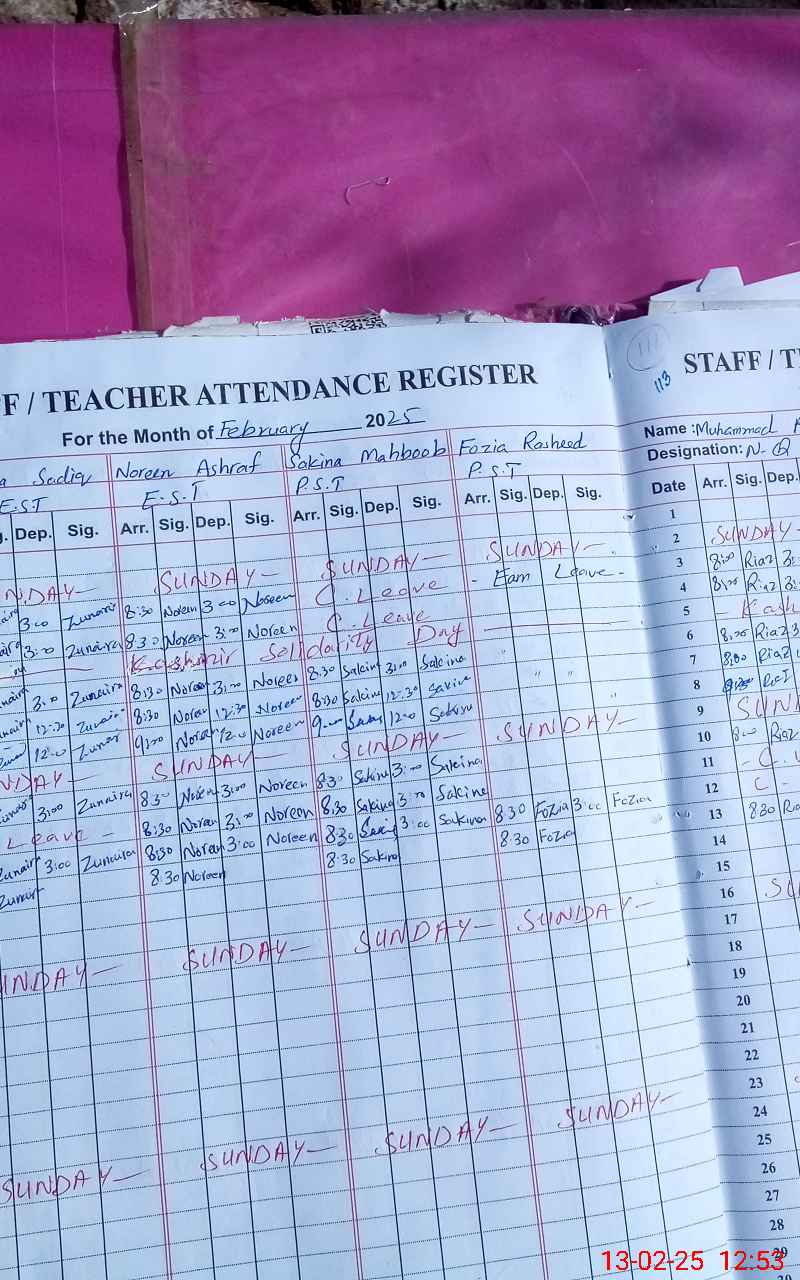 F / TEACHER ATTENDANCE REGISTER
For the Month of February 2025
a Sadiq Noreen Ashraf Sakina Mahboob Fozia Rasheed
E.S.T E.S.T P.S.T P.S.T
g. Dep. Sig. Arr. Sig. Dep. Sig. Arr. Sig. Dep. Sig. Arr. Sig. Dep. Sig.
NDAY SUNDAY SUNDAY SUNDAY
3:00 Zunaira 8:30 Noreen 3:00 Noreen C. Leave - Earn Leave -
3:00 Zunaira 8:30 Noreen 3:00 Noreen C. Leave
Kashmir Solidarity Day
3:00 Zunaira 8:30 Noreen 3:00 Noreen 8:30 Sakina 3:00 Sakina
12:30 Zunaira 8:30 Noreen 12:30 Noreen 8:30 Sakina 12:30 Sakina " " "
12:00 Zunair 9:00 Noreen 12:00 Noreen 9:00 12:00 Sakina "
NDAY SUNDAY SUNDAY SUNDAY
3:00 Zunaira 8:30 Noreen 3:00 Noreen 8:30 Sakina 3:00 Sakina
Leave - 8:30 Noreen 3:00 Noreen 8:30 Sakina 3:00 Sakina
Zunair 3:00 Zunaira 8:30 Noreen 3:00 Noreen 8:30 Sakina 3:00 Sakina 8:30 Fozia 3:00 Fozia
Zunair 8:30 Noreen 8:30 Sakina 8:30 Fozia
UNDAY SUNDAY SUNDAY SUNDAY
SUNDAY SUNDAY SUNDAY SUNDAY
113
STAFF / T
Name : Muhammad
Designation: N-Q
Date Arr. Sig. Dep.
1
2 SUNDAY
3 8:00 Riaz 3:
4 8:00 Riaz 3:
5 - Kash
6 8:00 Riaz 3
7 8:00 Riaz
8 Riaz
9 SUN
10 8:00 Riaz
11 - C.
12 C
13 8:30
14
15
16 SU
17
18
19
20
21
22
23
24
25
26
27
28
29
13-02-25 12:53